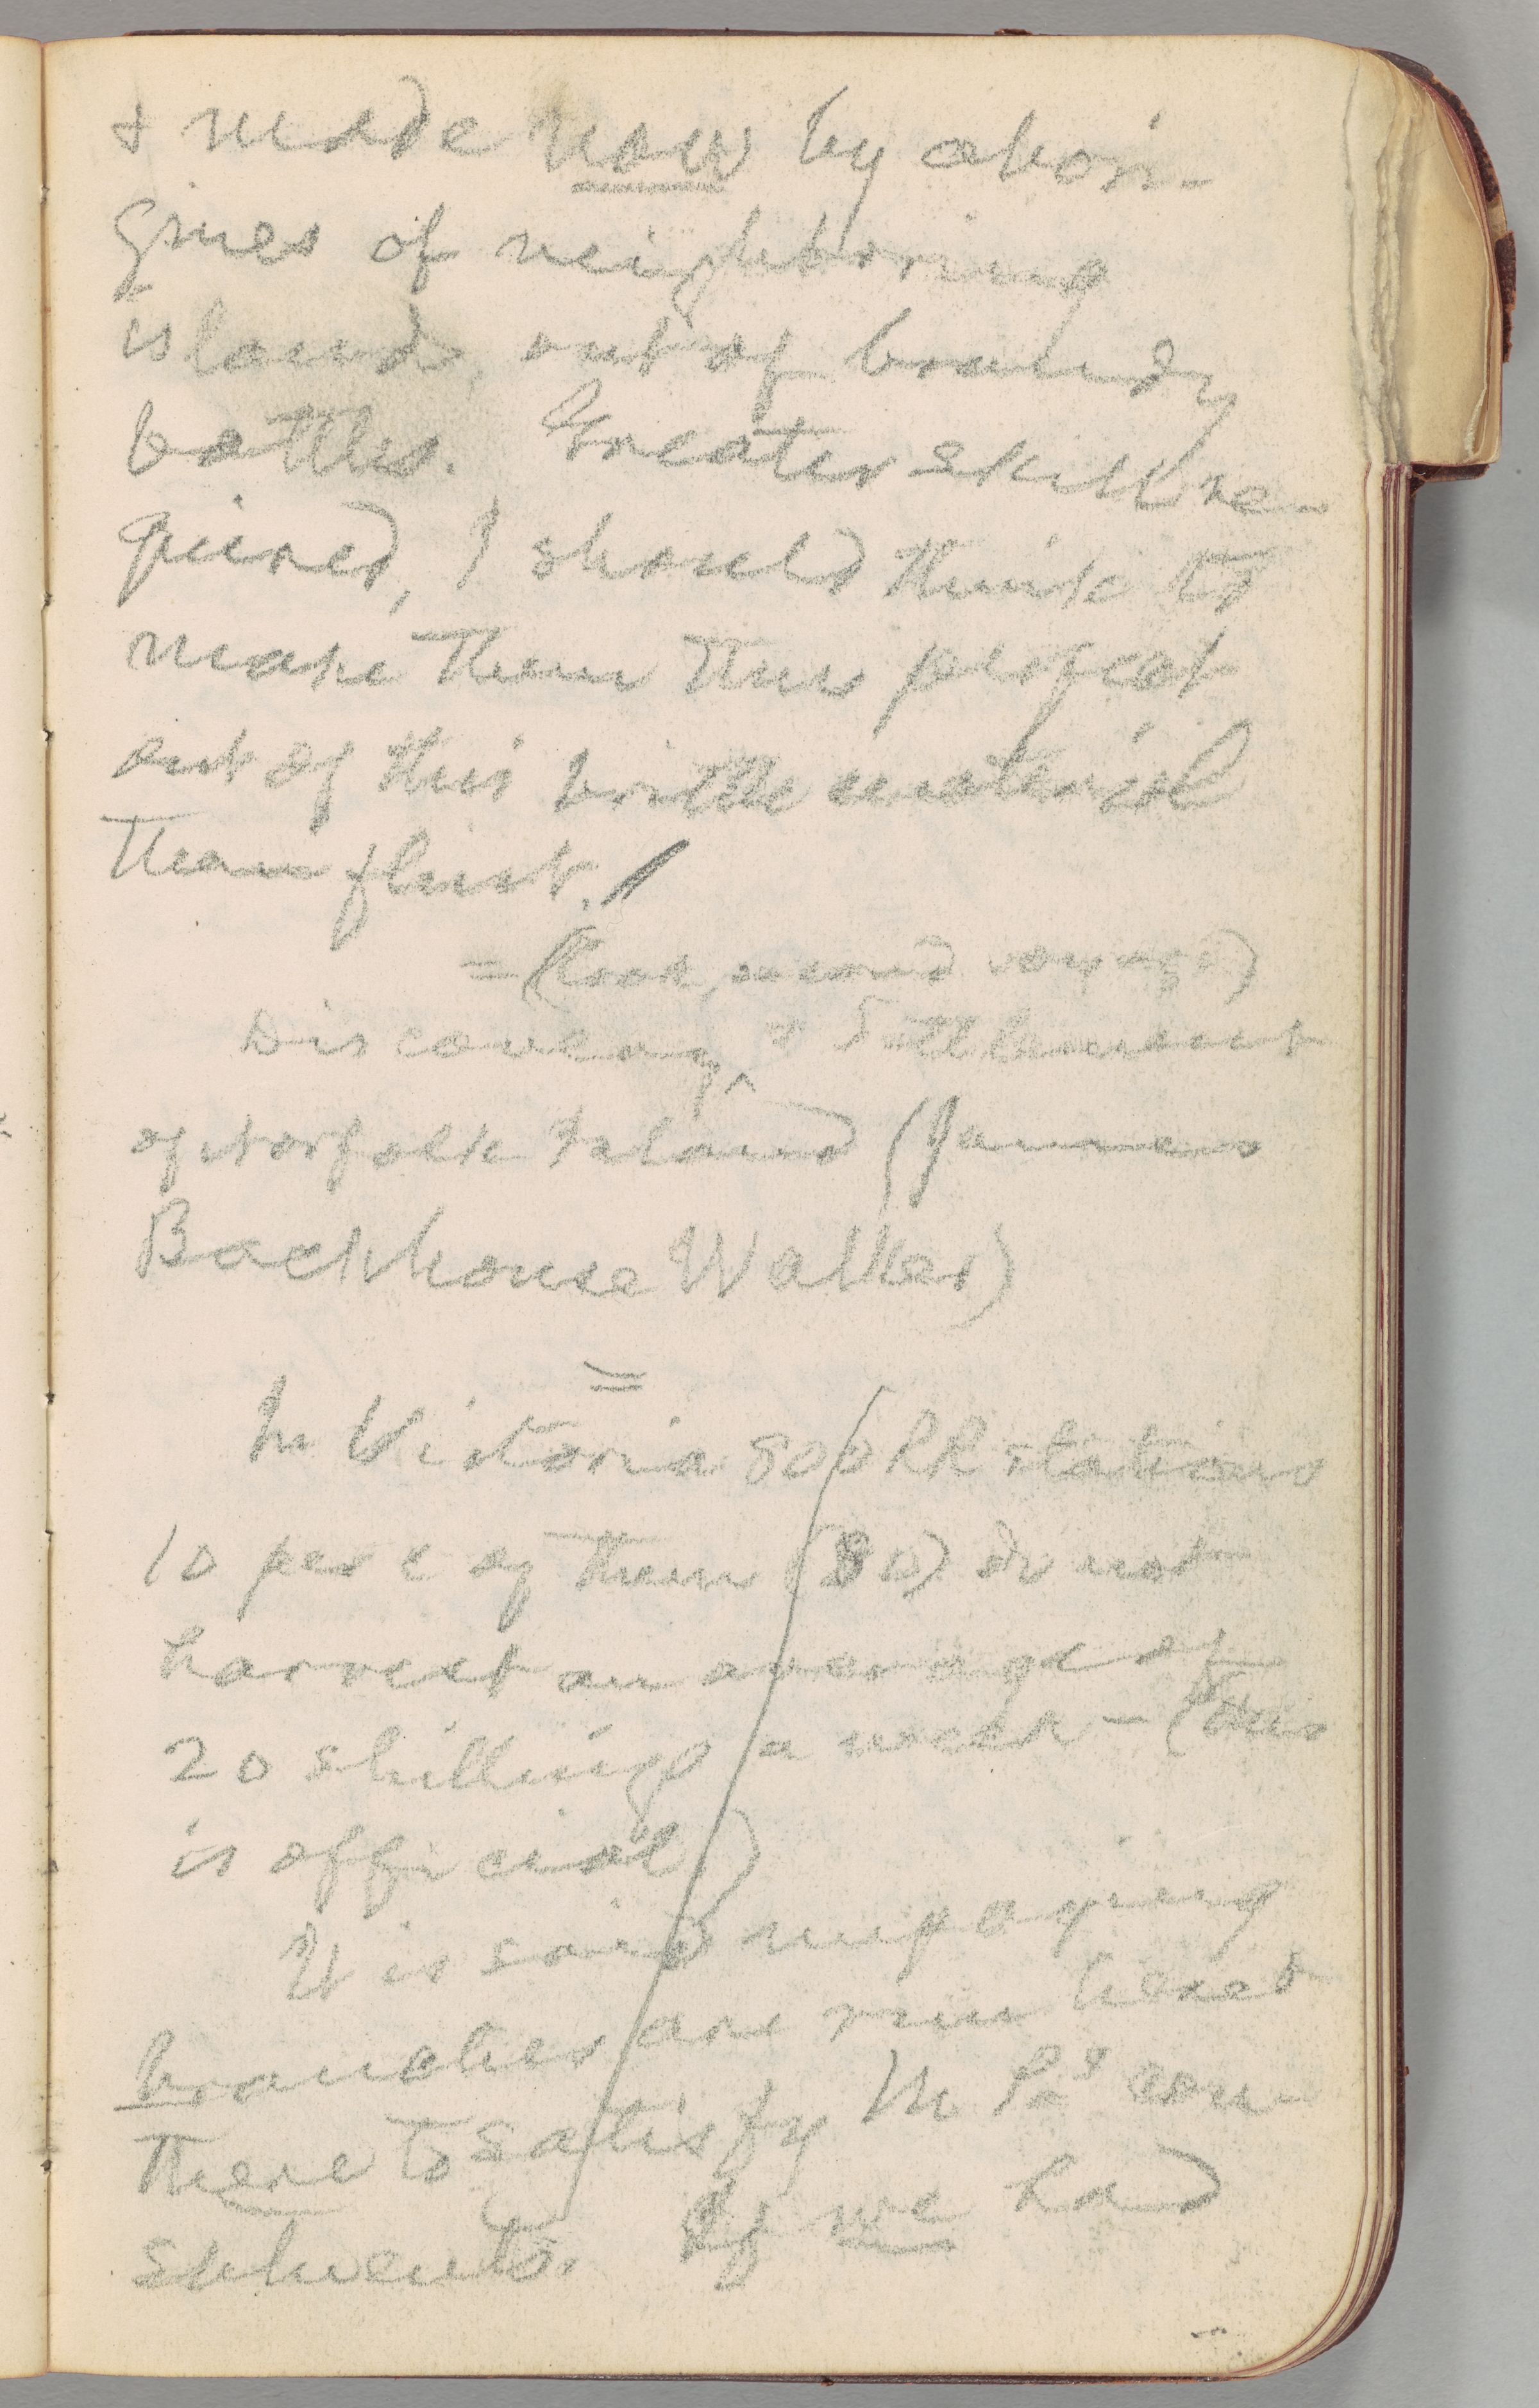 & made now by abori-
gines of neighboring
island, out of brandy
bottles. Greater skill re-
quired, I should think to
make them thus perfect
out of this brittle material
than flint.
= (Cook, second voyage)
Discovery ^ & Settlement
of Norfolk Island (James
Backhouse Walker)
=
In Victoria 800 RR stations
10 per c of them (80) do not
harvest an average of
20 shillings a week — (this
is official)
It is said unpaying
branches are run here &
there to satisfy M P's con-
stituents. If we had